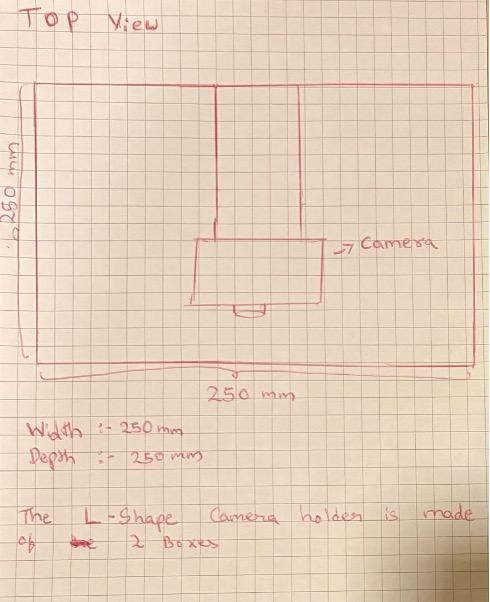 TOP View
250 mm
→ Camera
250 mm
Width :- 250 mm
Depth :- 250 mm
The L-Shape Camera holder is made
of 2 Boxes